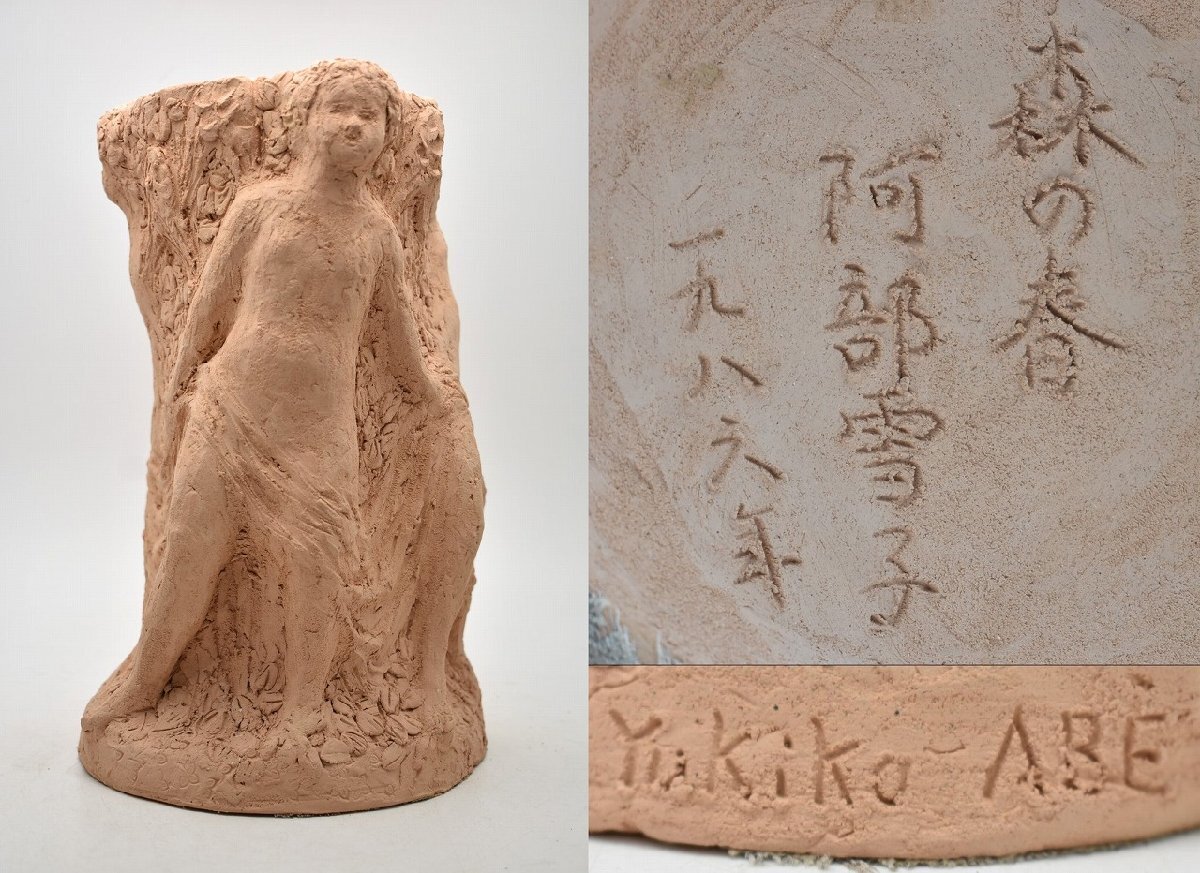 森の春
阿部雪子
一九八六年
Yukiko ABE